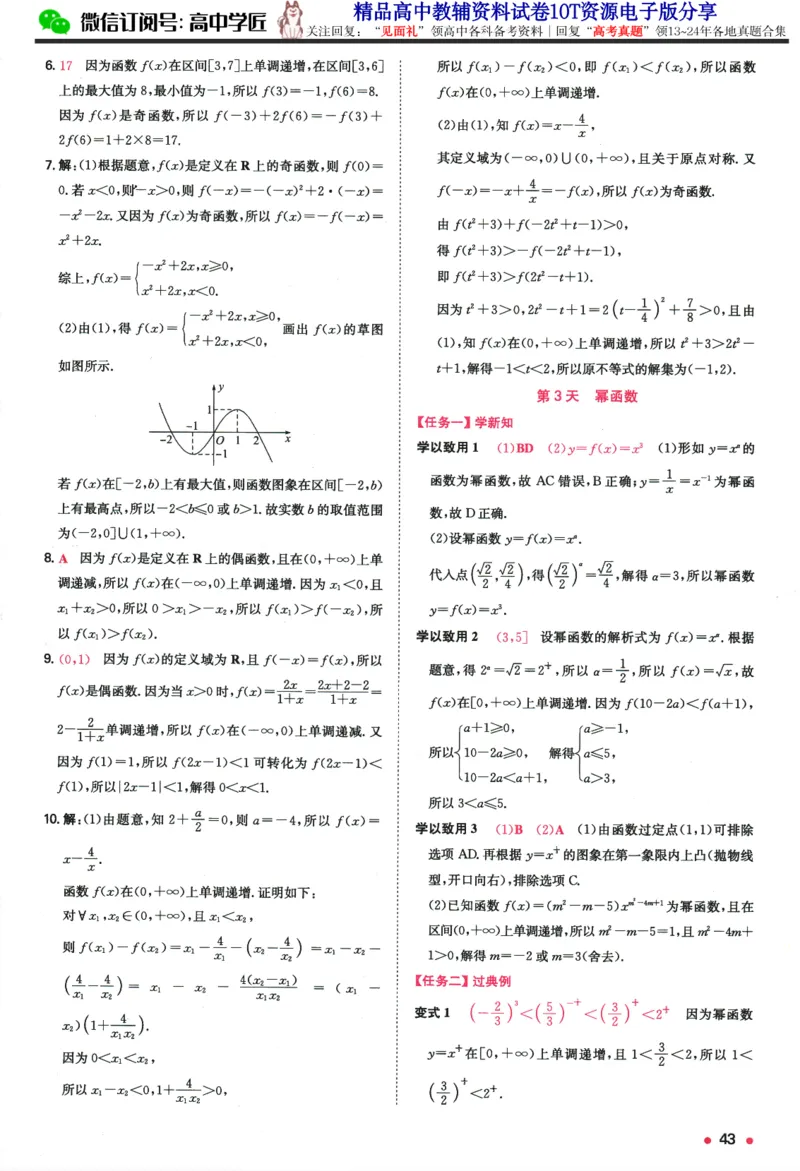 微信订阅号:高中学匠
精品高中教辅资料试卷IOT资源电子版分享
关注回复:“见面礼”领高中各科备考资料|回复“高考真题”领13~24年各地真题合集
6. 17 因为函数 f(x)在区间[3,7]上单调递增,在区间[3,6]
上的最大值为 8,最小值为-1,所以 f(3)=-1,f(6)=8.
因为 f(x)是奇函数,所以 f(-3)+2f(6)=-f(3)+
2f(6)=1+2×8=17.
7. 解:(1)根据题意,f(x)是定义在 R 上的奇函数,则 f(0)=
0.若 x<0,则-x>0,则 f(-x)=-(-x)²+2·(-x)=
-x²-2x.又因为 f(x)为奇函数,所以 f(x)=-f(-x)=
x²+2x.
综上,f(x)={-x²+2x,x≥0,
x²+2x,x<0.
(2)由(1),得 f(x)={-x²+2x,x≥0,
x²+2x,x<0,
画出 f(x)的草图
如图所示.
y
1
-1
-2 O 1 2 x
-1
若 f(x)在[-2,b)上有最大值,则函数图象在区间[-2,b)
上有最高点,所以-2<b≤0 或 b>1.故实数 b 的取值范围
为(-2,0]∪(1,+∞).
8. A 因为 f(x)是定义在 R 上的偶函数,且在(0,+∞)上单
调递减,所以 f(x)在(-∞,0)上单调递增.因为 x₁<0,且
x₁+x₂>0,所以 0>x₁>-x₂,所以 f(x₁)>f(-x₂),所
以 f(x₁)>f(x₂).
9. (0,1) 因为 f(x)的定义域为 R,且 f(-x)=f(x),所以
f(x)是偶函数.因为当 x>0 时,f(x)=2x/(1+x)=(2x+2-2)/(1+x)=
2-2/(1+x)单调递增,所以 f(x)在(-∞,0)上单调递减.又
因为 f(1)=1,所以 f(2x-1)<1 可转化为 f(2x-1)<
f(1),所以|2x-1|<1,解得 0<x<1.
10. 解:(1)由题意,知 2+a/2=0,则 a=-4,所以 f(x)=
x-4/x.
函数 f(x)在(0,+∞)上单调递增.证明如下:
对∀x₁,x₂∈(0,+∞),且 x₁<x₂,
则 f(x₁)-f(x₂)=x₁-4/x₁-(x₂-4/x₂)=x₁-x₂-
(4/x₁-4/x₂)=x₁-x₂-4(x₂-x₁)/(x₁x₂)=(x₁-
x₂)(1+4/(x₁x₂)).
因为 0<x₁<x₂,
所以 x₁-x₂<0,1+4/(x₁x₂)>0,
所以 f(x₁)-f(x₂)<0,即 f(x₁)<f(x₂),所以函数
f(x)在(0,+∞)上单调递增.
(2)由(1),知 f(x)=x-4/x,
其定义域为(-∞,0)∪(0,+∞),且关于原点对称.又
f(-x)=-x+4/x=-f(x),所以 f(x)为奇函数.
由 f(t²+3)+f(-2t²+t-1)>0,
得 f(t²+3)>-f(-2t²+t-1),
即 f(t²+3)>f(2t²-t+1).
因为 t²+3>0,2t²-t+1=2(t-1/4)²+7/8>0,且由
(1),知 f(x)在(0,+∞)上单调递增,所以 t²+3>2t²-
t+1,解得-1<t<2,所以原不等式的解集为(-1,2).
第 3 天 幂函数
【任务一】学新知
学以致用 1 (1)BD (2)y=f(x)=x³ (1)形如 y=xᵅ的
函数为幂函数,故 AC 错误,B 正确;y=1/x=x⁻¹为幂函
数,故 D 正确.
(2)设幂函数 y=f(x)=xᵅ.
代入点(√2/2,√2/4),得(√2/2)ᵅ=√2/4,解得 α=3,所以幂函数
y=f(x)=x³.
学以致用 2 (3,5] 设幂函数的解析式为 f(x)=xᵅ.根据
题意,得 2ᵅ=√2=2^(1/2),所以 α=1/2,所以 f(x)=√x,故
f(x)在[0,+∞)上单调递增.因为 f(10-2a)<f(a+1),
所以{a+1≥0, 10-2a≥0, 10-2a<a+1, 解得{a≥-1, a≤5, a>3,
所以 3<a≤5.
学以致用 3 (1)B (2)A (1)由函数过定点(1,1)可排除
选项 AD.再根据 y=x 的图象在第一象限内上凸(抛物线
型,开口向右),排除选项 C.
(2)已知函数 f(x)=(m²-m-5)x^(m²-4m+1)为幂函数,且在
区间(0,+∞)上单调递增,所以 m²-m-5=1,且 m²-4m+
1>0,解得 m=-2 或 m=3(舍去).
【任务二】过典例
变式 1 (-2/3)³<(5/3)<(3/2)<2 因为幂函数
y=x 在[0,+∞)上单调递增,且 1<3/2<2,所以 1<
(3/2)<2.
43